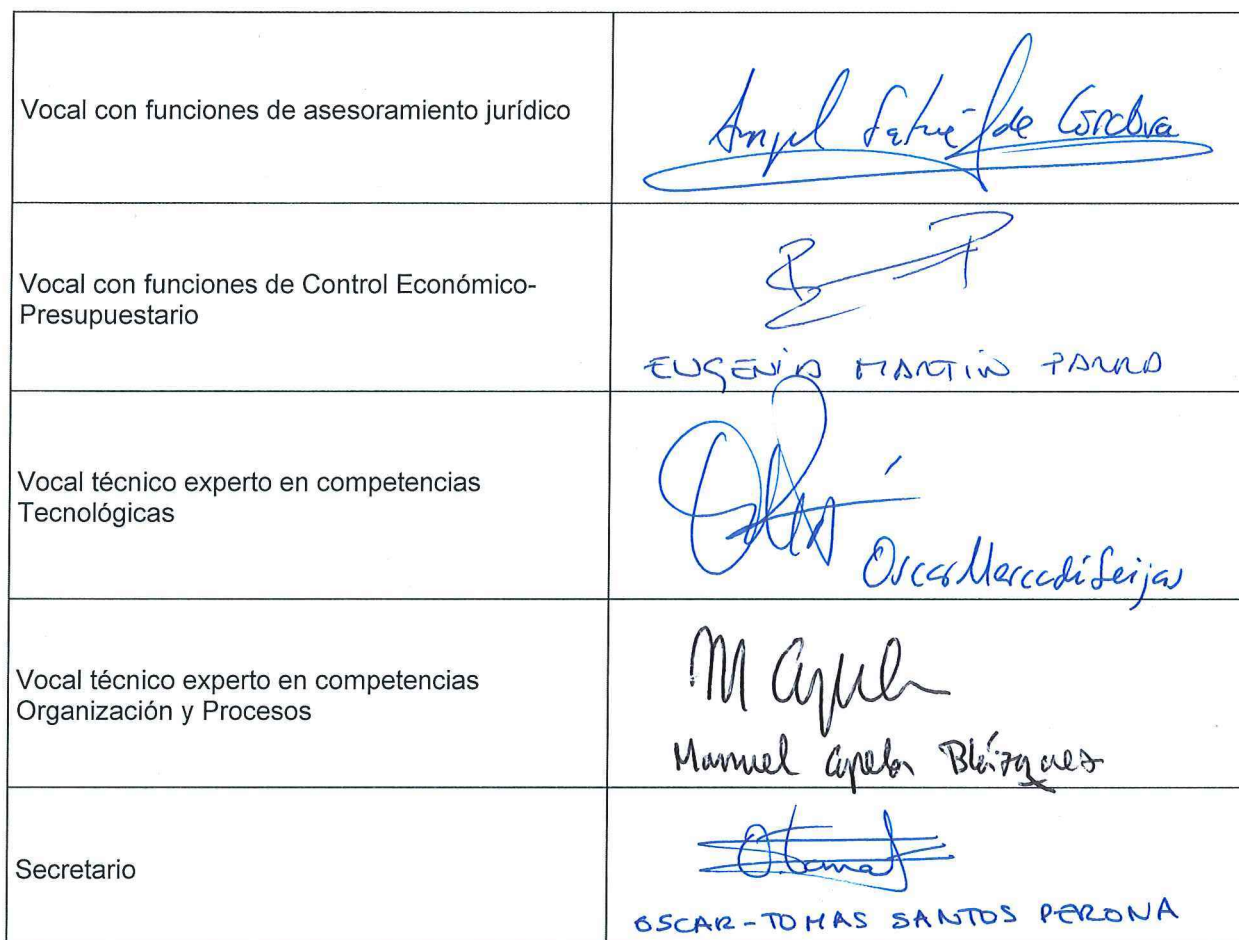 Vocal con funciones de asesoramiento jurídico
Angel de Cordova
Vocal con funciones de Control Económico-
Presupuestario
EUGENIA MARTIN PARRA
Vocal técnico experto en competencias
Tecnológicas
Oscar Mercadí Seijas
Vocal técnico experto en competencias
Organización y Procesos
M
Manuel Blázquez
Secretario
OSCAR-TOMAS SANTOS PERONA